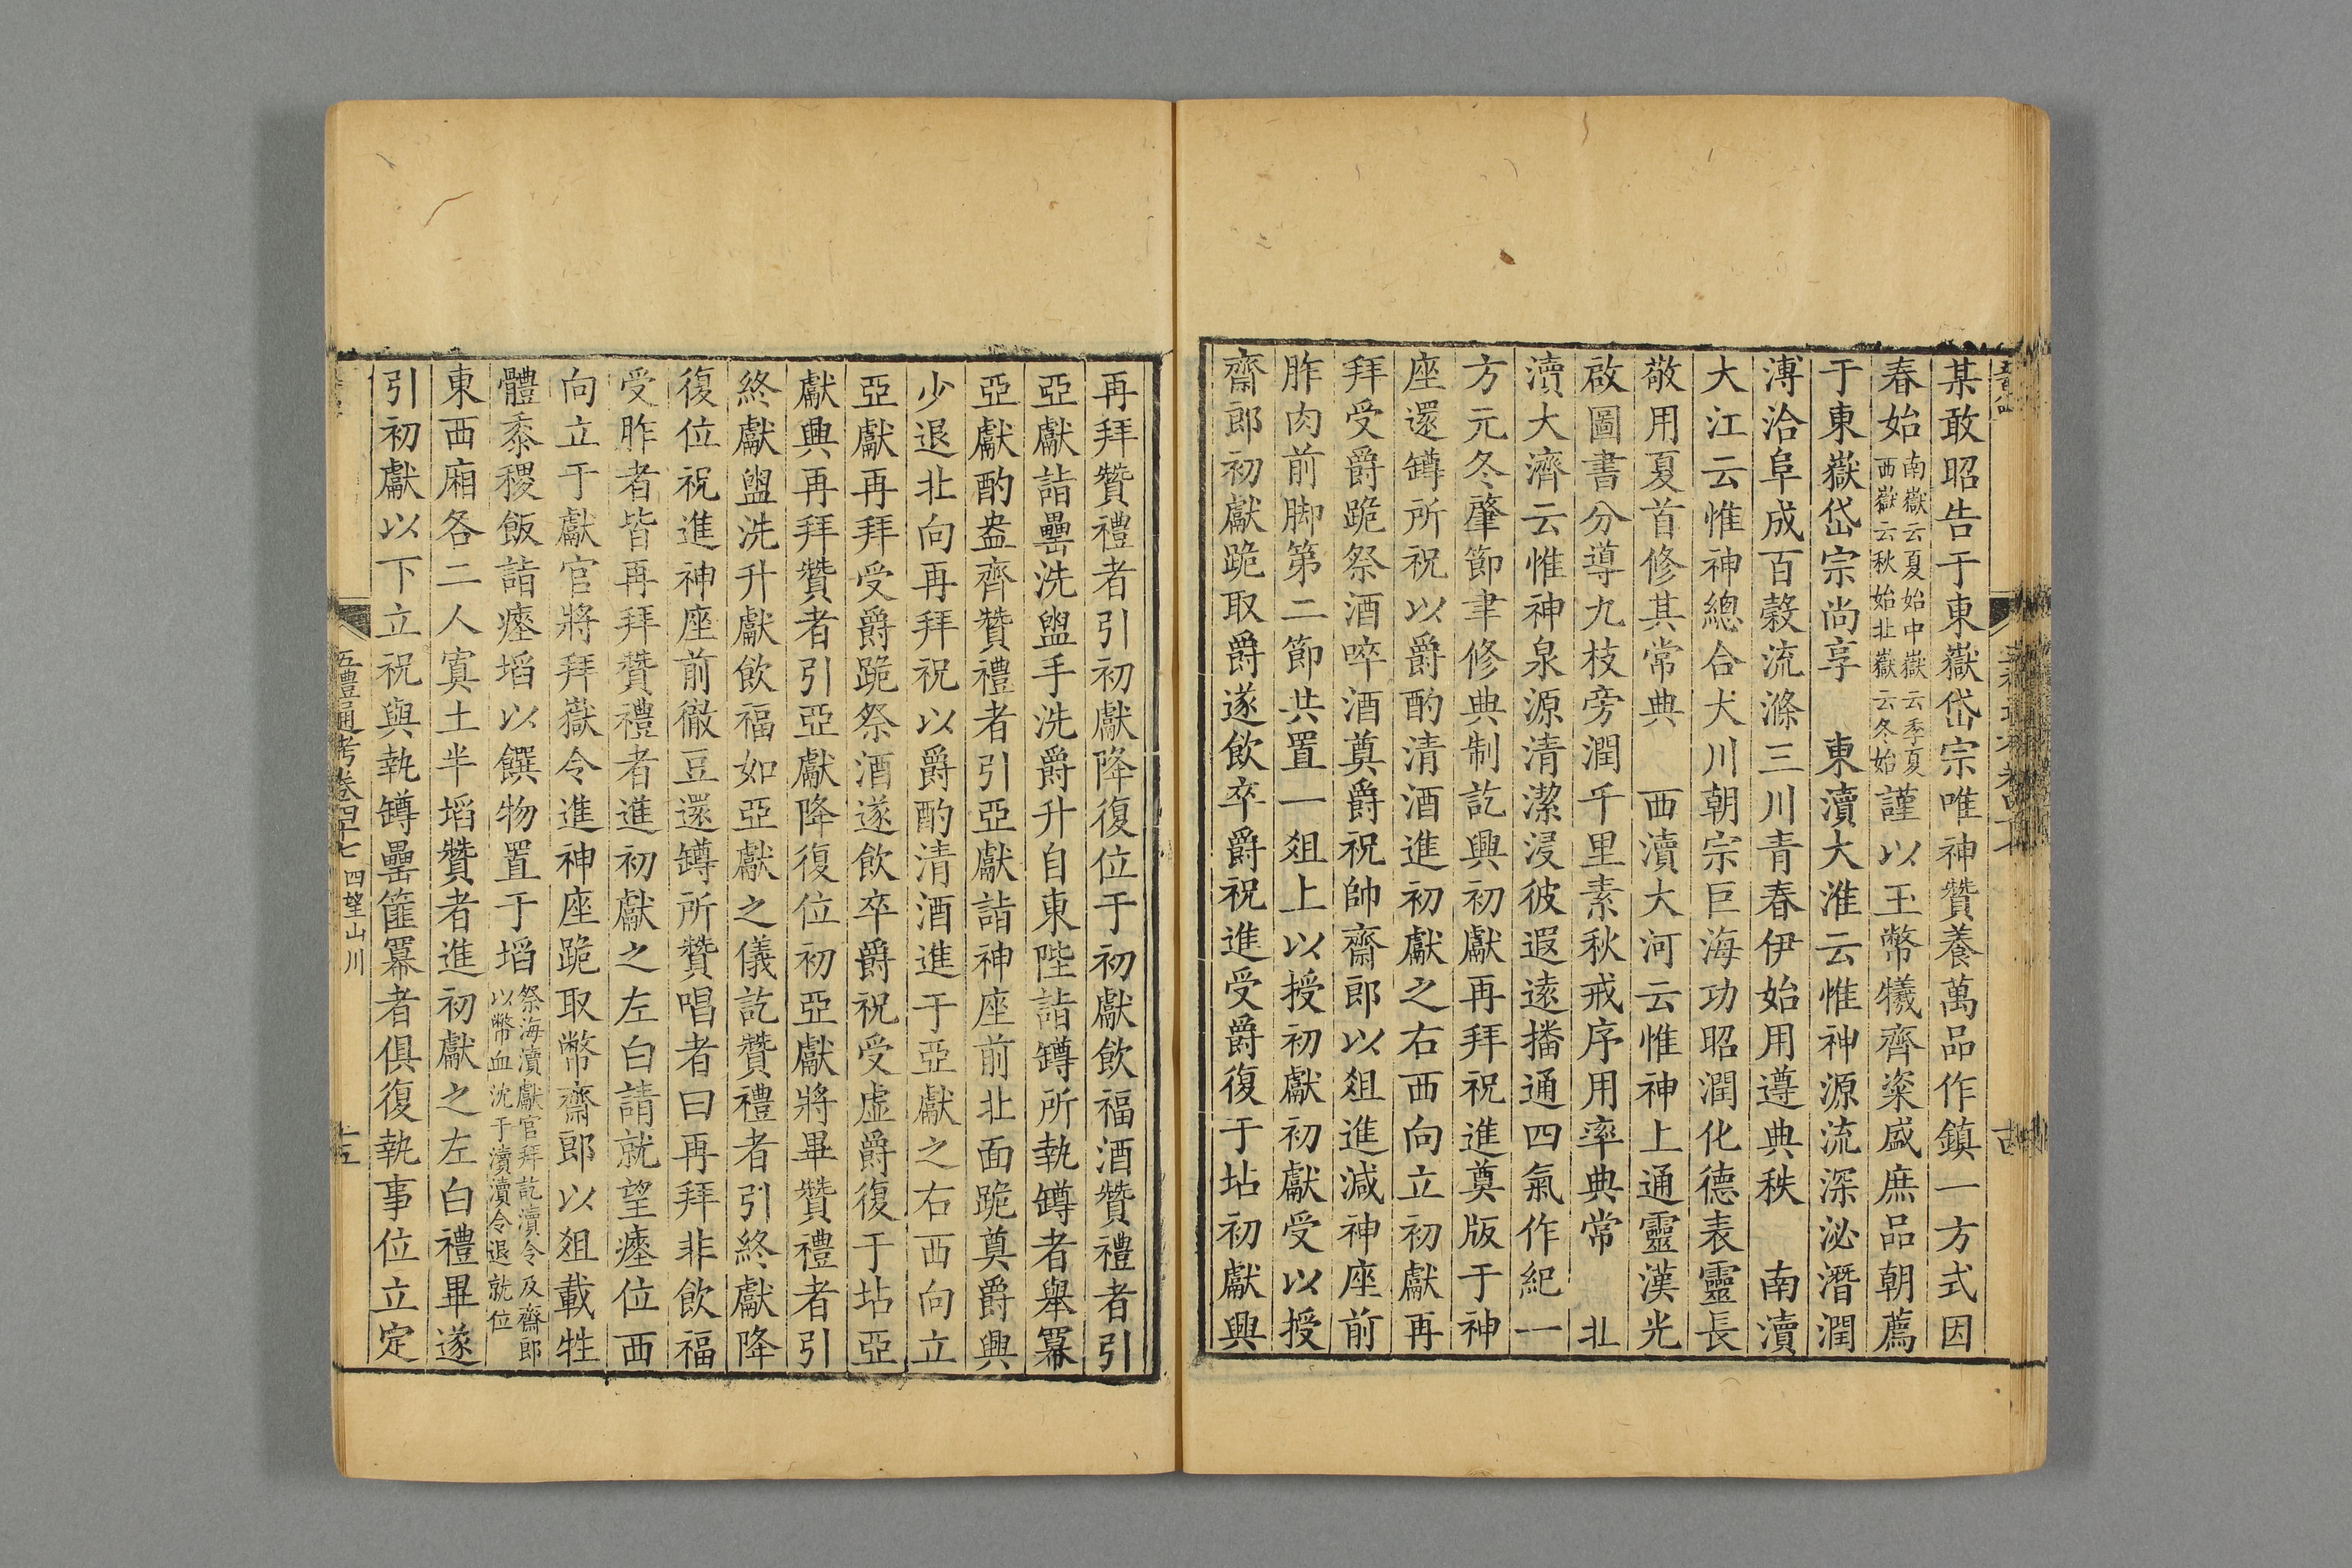 某敢昭告于東嶽岱宗唯神贊養萬品作鎮一方式因
春始南嶽云夏始中嶽云季夏西嶽云秋始北嶽云冬始謹以玉幣犧齊粢盛庶品朝薦
于東嶽岱宗尚享　東瀆大淮云惟神源流深泌潛潤
溥洽阜成百穀流滌三川青春伊始用遵典秩　南瀆
大江云惟神總合大川朝宗巨海功昭潤化德表靈長
敬用夏首修其常典　西瀆大河云惟神上通靈漢光
啟圖書分導九枝旁潤千里素秋戒序用率典常　北
瀆大濟云惟神泉源清潔浸彼遐遠播通四氣作紀一
方元冬肇節聿修典制訖興初獻再拜祝進奠版于神
座還罇所祝以爵酌清酒進初獻之右西向立初獻再
拜受爵跪祭酒啐酒奠爵祝帥齋郎以俎進減神座前
胙肉前脚第二節共置一俎上以授初獻初獻受以授
齋郎初獻跪取爵遂飲卒爵祝進受爵復于坫初獻興
再拜贊禮者引初獻降復位于初獻飲福酒贊禮者引
亞獻詣罍洗盥手洗爵升自東陛詣罇所執罇者舉羃
亞獻酌盎齊贊禮者引亞獻詣神座前北面跪奠爵興
少退北向再拜祝以爵酌清酒進于亞獻之右西向立
亞獻再拜受爵跪祭酒遂飲卒爵祝受虛爵復于坫亞
獻興再拜贊者引亞獻降復位初亞獻將畢贊禮者引
終獻盥洗升獻飲福如亞獻之儀訖贊禮者引終獻降
復位祝進神座前徹豆還罇所贊唱者曰再拜非飲福
受胙者皆再拜贊禮者進初獻之左白請就望瘞位西
向立于獻官將拜嶽令進神座跪取幣齋郎以俎載牲
體黍稷飯詣瘞埳以饌物置于埳祭海瀆獻官拜訖瀆令及齋郎以幣血沈于瀆瀆令退就位
東西廂各二人寘土半埳贊者進初獻之左白禮畢遂
引初獻以下立祝與執罇罍篚羃者俱復執事位立定
五禮通考卷四十七　四望山川　十五